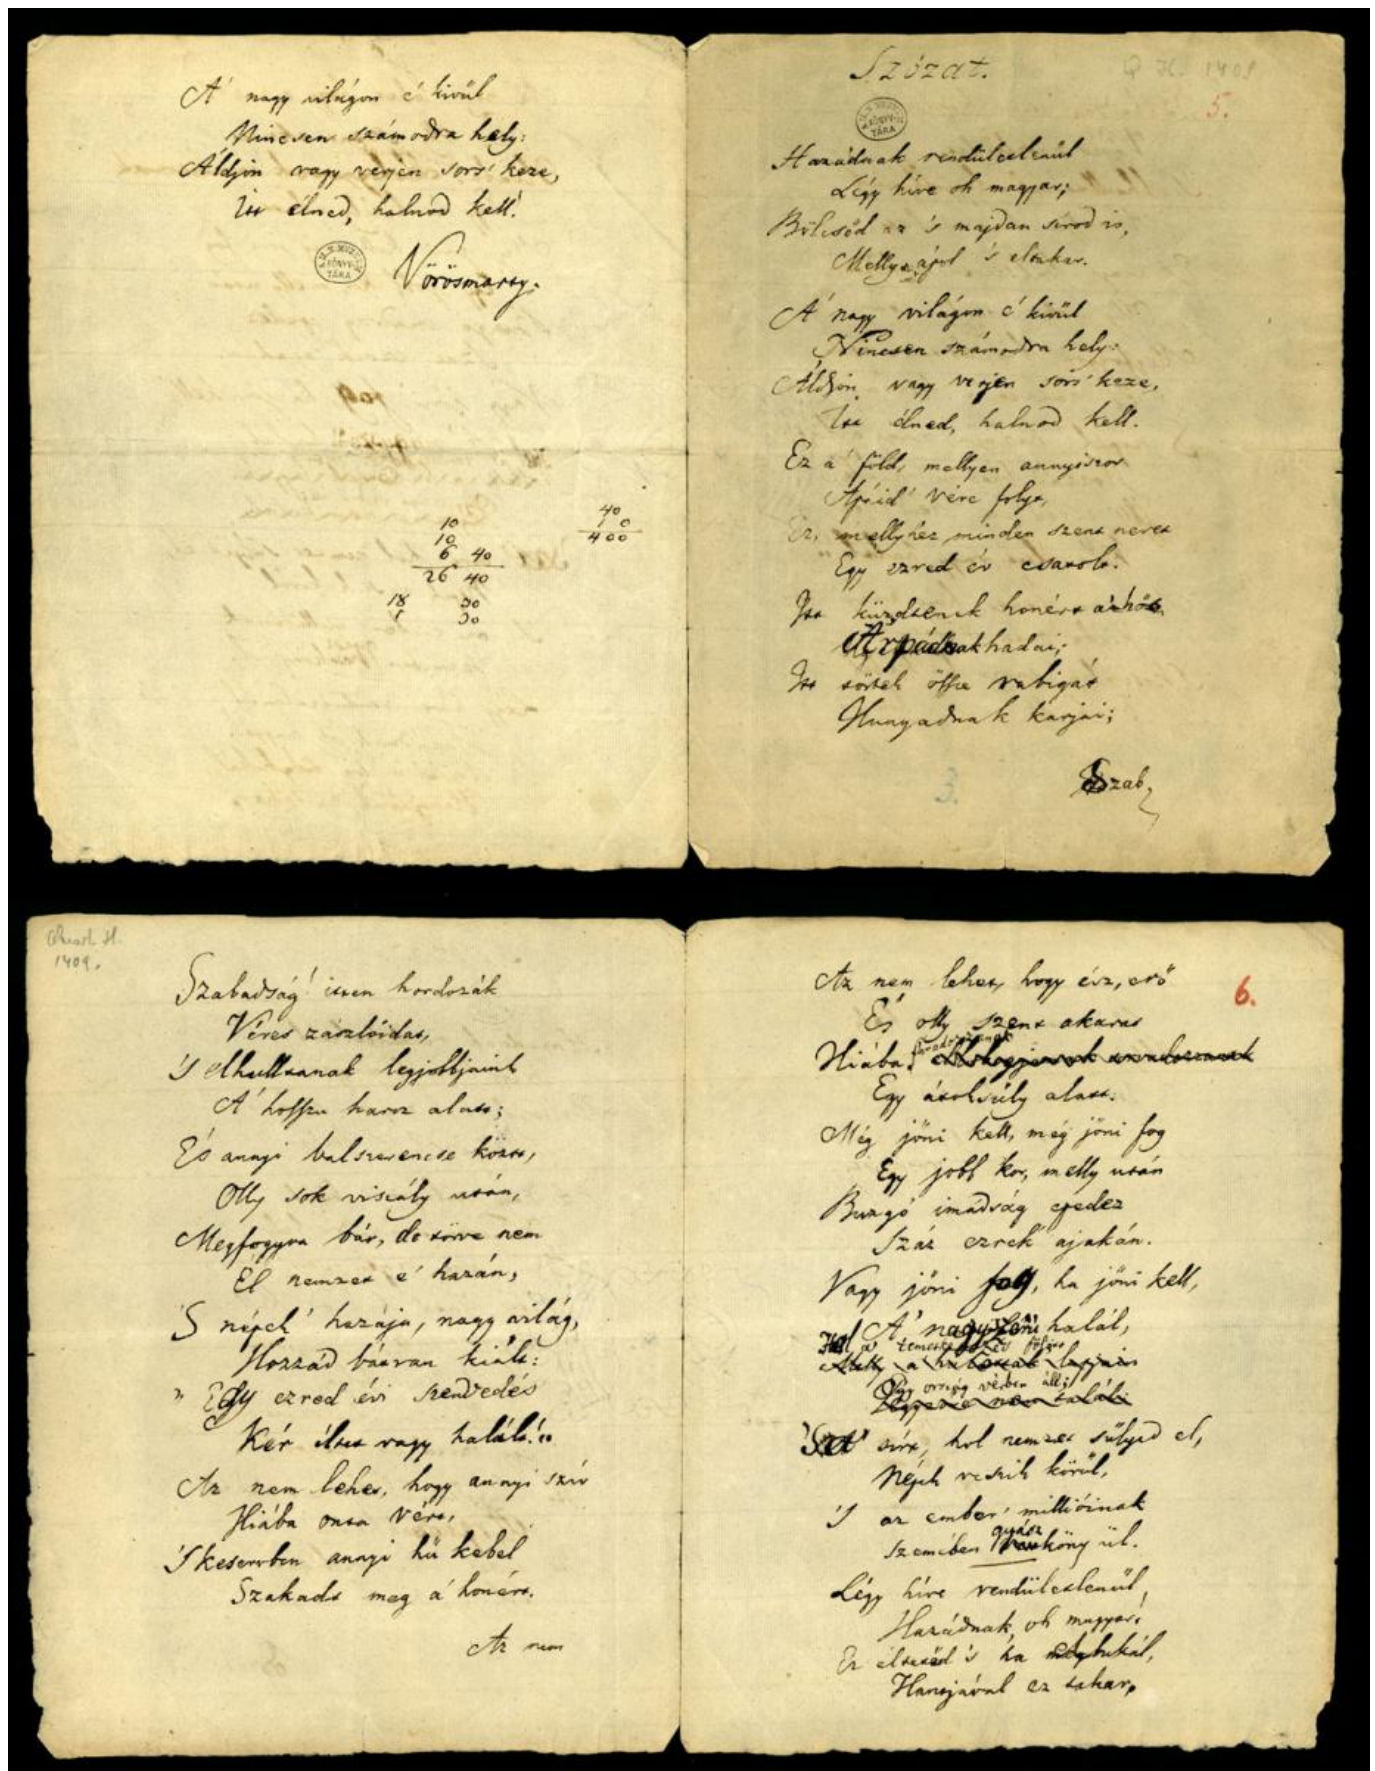 A' nagy világon e' kivül
Nincsen számodra hely:
Áldjon vagy verjen sors' keze,
Itt élned, halnod kell!
Vörösmarty.
10
10
6 40
26 40
18 30
30
40
10
400
Szózat.
Q H. 1409
5.
Hazádnak rendületlenűl
Légy híve oh magyar;
Bölcsőd az 's majdan sírod is,
Melly ápol 's eltakar.
A' nagy világon e' kivűl
Nincsen számodra hely:
Áldjon vagy verjen sors' keze,
Itt élned, halnod kell.
Ez a' föld, mellyen annyiszor
Apáid' vére folyt,
Ez, mellyhez minden szent nevet
Egy ezred év csatolt.
Itt küzdtenek honért a' hős
Árpádnak hadai;
Itt törtek össze rabigát
Hunyadnak karjai;
3.
Szab,
Quart. H.
1409.
Szabadság! itten hordozák
Véres zászlóidat,
'S elhulltanak legjobbjaink
A' hosszu harcz alatt;
És annyi balszerencse közt,
Olly sok viszály után,
Megfogyva bár, de törve nem
Él nemzet e' hazán,
'S népek' hazája, nagy világ,
Hozzád bátran kiált:
„ Egy ezred évi szenvedés
Kér éltet vagy halált!"
Az nem lehet, hogy annyi szív
Hiába onta vért,
'S keservben annyi hű kebel
Szakadt meg a' honért.
Az nem
6.
Az nem lehet, hogy ész, erő
És olly szent akarat
Hiába
Egy átoksúly alatt.
Még jőni kell, még jőni fog
Egy jobb kor, melly után
Buzgó imádság epedez
Száz ezrek' ajakán.
Vagy jőni fog, ha jőni kell,
A' nagyszerü halál,
Hol a' temetkezés fölött
Egy ország vérben áll;
'S a' sírt, hol nemzet sűlyed el,
Népek veszik körűl,
'S az ember' millióinak
gyász
Szemében könny ül.
Légy híve rendületlenűl,
Hazádnak, oh magyar!
Ez éltetőd 's ha elbukál,
Hantjával ez takar,